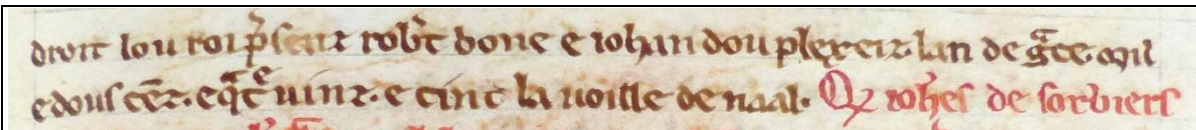 droit lou roi p̃sent robt̃ bone e iohan dou plexeiz lan de gᵃce. mil
e dous cēz. e qᵃtᵉ uinz. e cinc la uoille de naal. Q̃ ioh̃es de sorbiers